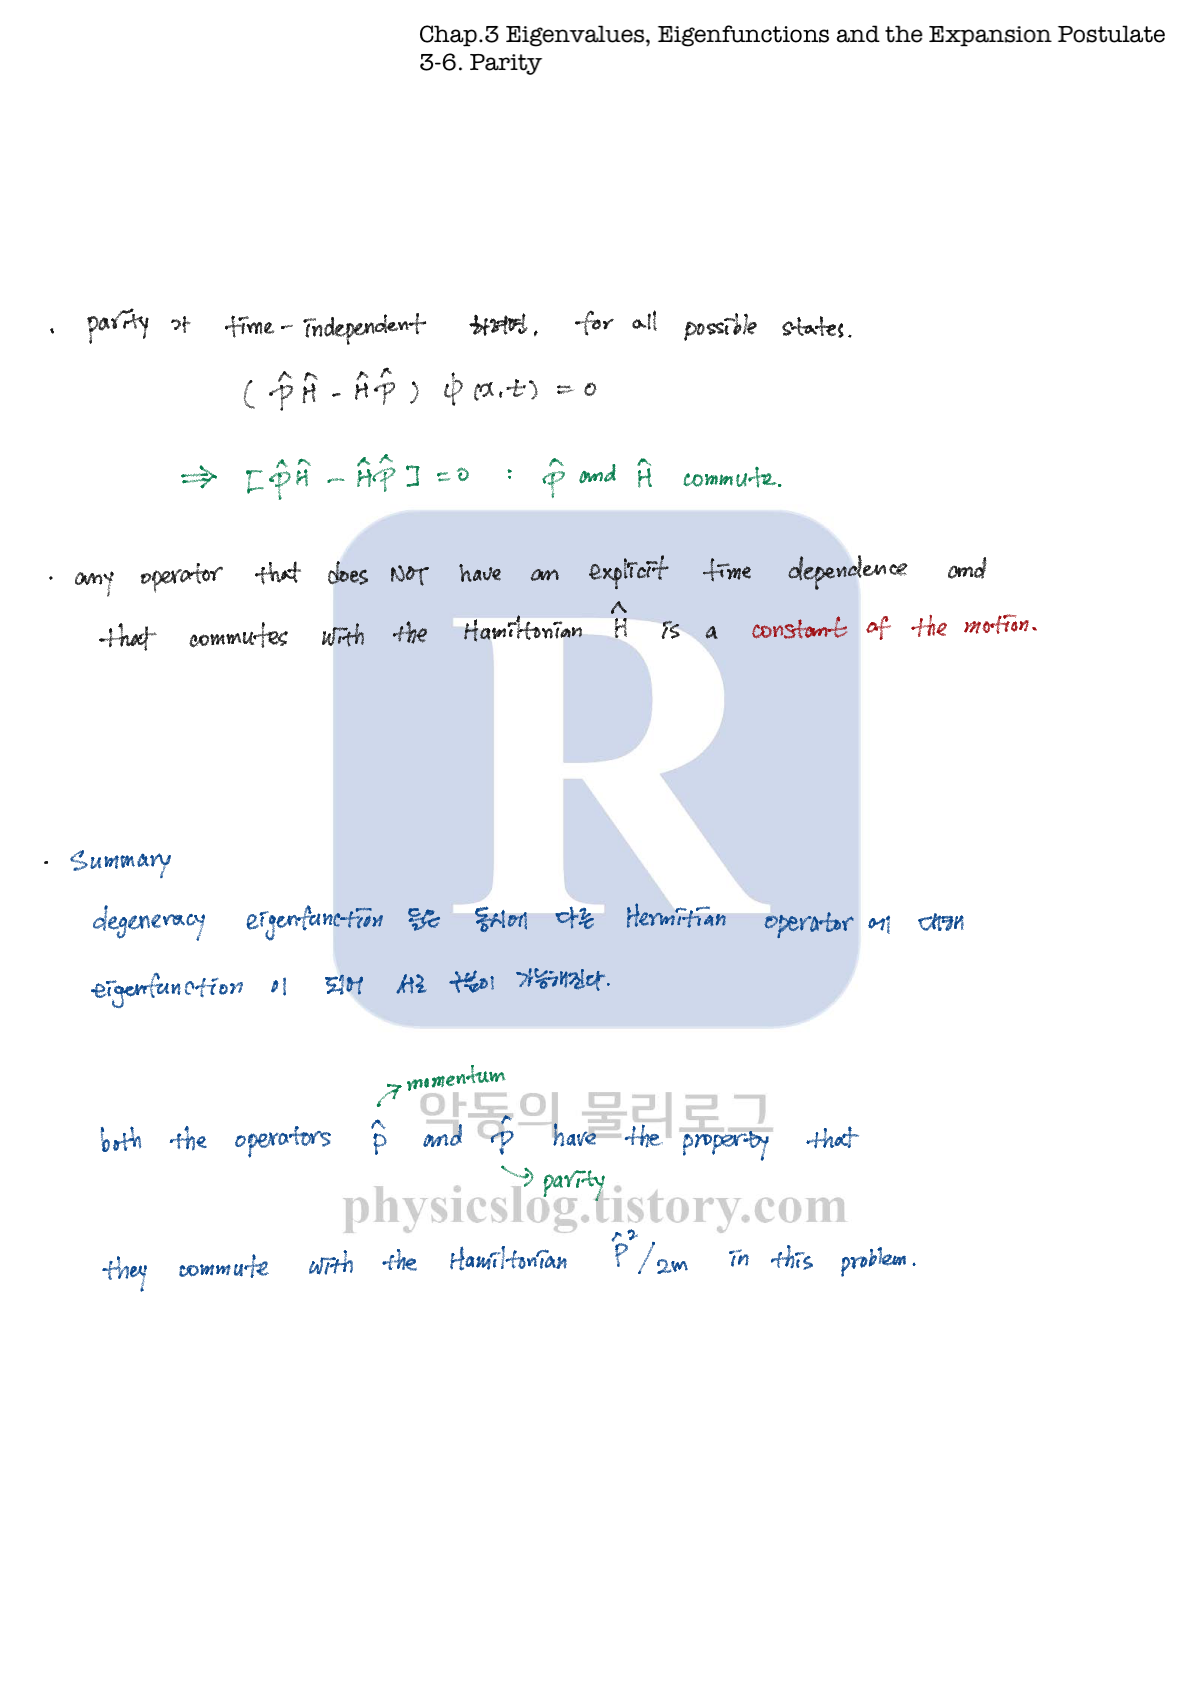 Chap.3 Eigenvalues, Eigenfunctions and the Expansion Postulate
3-6. Parity
· parity 가 time-independent 하려면, for all possible states.
( P̂Ĥ - ĤP̂ ) ψ(x,t) = 0
⇒ [P̂Ĥ - ĤP̂] = 0 : P̂ and Ĥ commute.
· any operator that does NOT have an explicit time dependence and
that commutes with the Hamiltonian Ĥ is a constant of the motion.
R
· Summary
degeneracy eigenfunction 들은 동시에 다른 Hermitian operator에 대해
eigenfunction이 되어 서로 구분이 가능해진다.
→ momentum
악동의 물리로그
both the operators p̂ and P̂ have the property that
→ parity
physicslog.tistory.com
they commute with the Hamiltonian p̂²/2m in this problem.